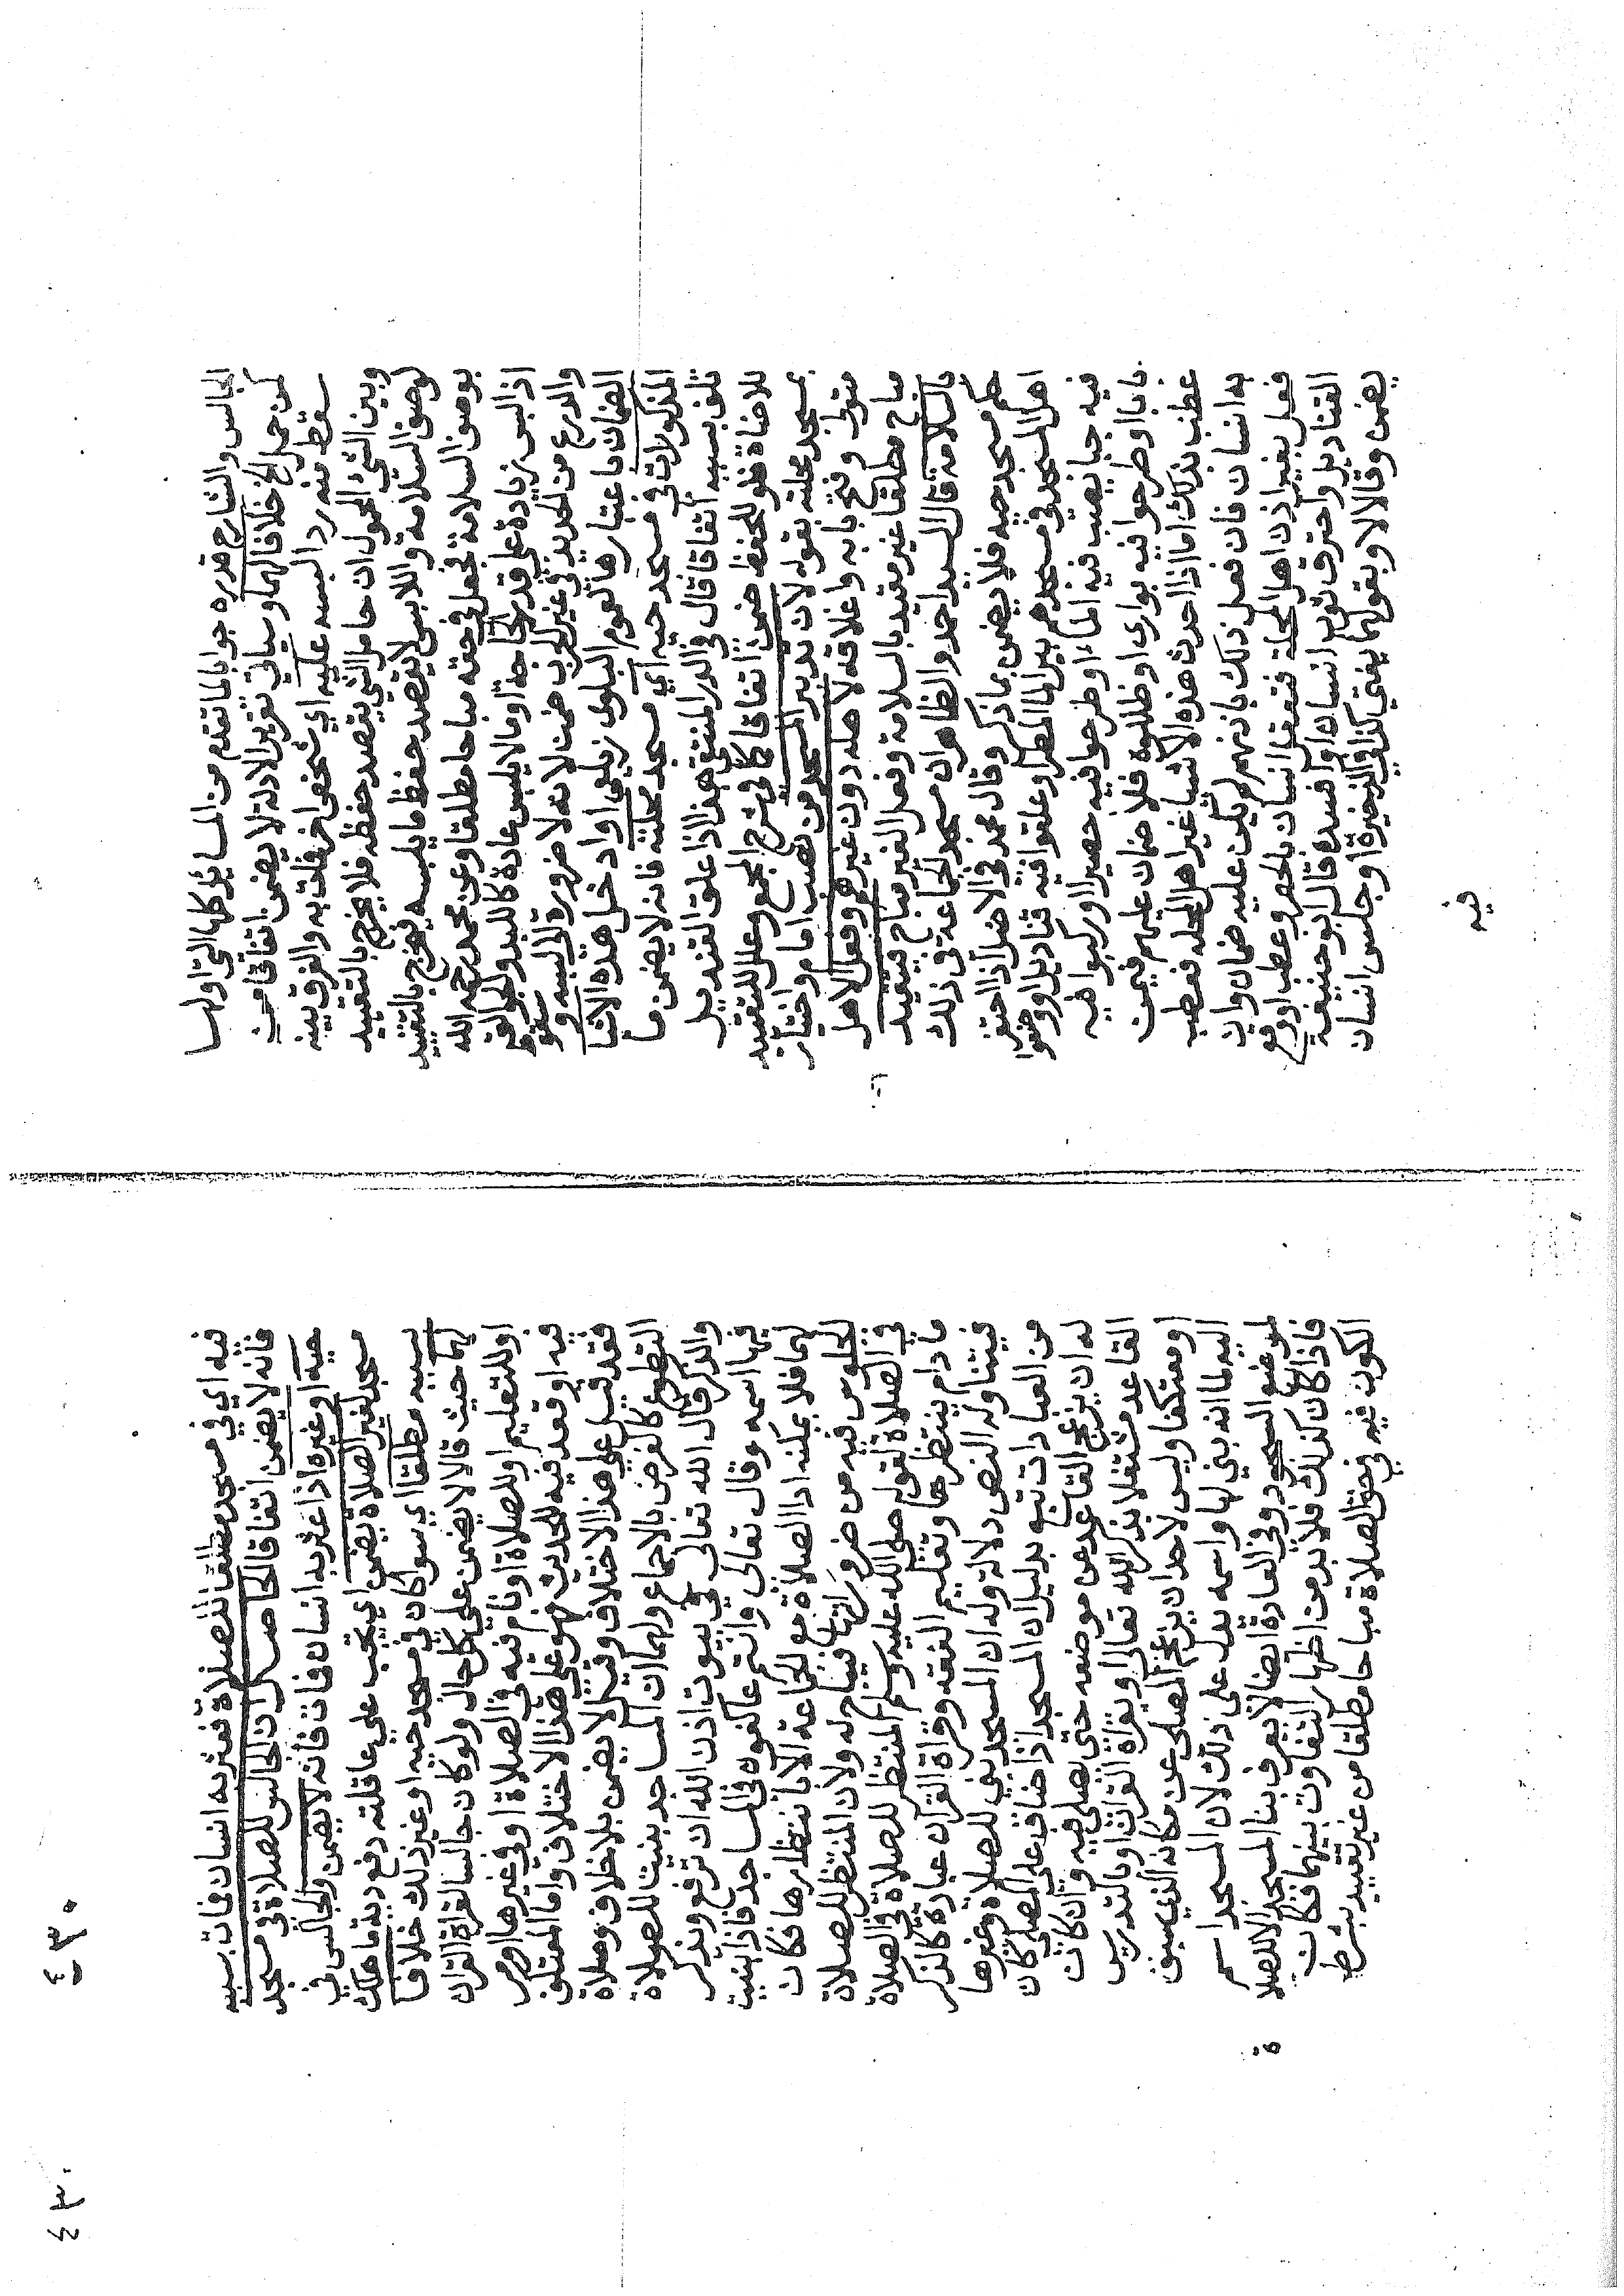 الجالس والشارع قدره جوابا لما تقدم من المسايل كلها التي اولها
لمن حمل الخ خلافا لهما وسياتي تقرير الادلة لا يضمن اتفاقا من
سقط منه ردا لبسه عليه اي شخص اخر فتلف به والفرق بينه
وبين الشي المحمول ان حامل الشي يقصد حفظه فلا يخرج بالتقييد
بوصف السلامة واللابس لا يقصد حفظ ما يلبسه فيخرج بالتقييد
بوصف السلامة فجعل في حقه مباحا مطلقا وعن محمد رحمه الله
اذا لبس زيادة على قدر الحاجة او ما لا يلبس عادة كاللبد والجوالق
والدرع من الحديد في غير الحرب ضمن لانه لا ضرورة الى لبسه وسقوط
الضمان باعتبارها لعموم البلوى زيلعي او ادخل هذه الاشيا
المذكورات في مسجد حيه اي مسجد محلته فانه لا يضمن ما
تلف بسببه اتفاقا قال في الدر المنتقى هذا اذا علق القنديل
للاضاة فلو للحفظ ضمن اتفاقا كما في شرح المجمع وعلل للتقييد
بمسجد محلته بقوله لان تدبير المسجد من نصب امام واختيار
متولي وفتح بابه واغلاقه لاهله دون غيرهم وفعل الاهل
مباح مطلقا غير مقيد بالسلامة وفعل الغير مباح فيتقيد
بالسلامة قال السيد احمد والظاهر ان مسجد الجماعة في ذلك
كمسجد حيه فلا يضمن بما ذكر وقال محمد في الاصل اذا احتفر
اهل المسجد في مسجدهم بيرا لما المطر او علقوا فيه قناديلا او وضعوا
فيه جبا يصب فيه الماء او طرحوا فيه حصيرا او ركبوا فيه
بابا او طرحوا فيه بواري او ظللوه فلا ضمان عليهم فيمن
عطب بذلك اما اذا احدث هذه الاشيا غير اهل المحله فعطب
به انسان فان فعل ذلك باذنهم لم يكن عليه ضمان وان
فعل بغير اذن اهل المحلة فتعقر انسان بالحصر وعطب او وقع
القناديل واحترق ثوب انسان او افسده قال ابو حنيفة
يضمن وقالا لا وبقولهما يفتي كذا في الذخيرة او جلس انسان
فيه
فيه اي في مسجد منتظرا للصلاة فعثر به انسان فمات بسببه
فانه لا يضمن اتفاقا فالحاصل ان الجالس للصلاة في مسجد
حيه او غيره اذا عثر به انسان فمات فانه لا يضمن والجالس في
مسجد لغير الصلاة يضمن اي يجب علي عاقلته دفع دية ما هلك
بسببه مطلقا اي سوا كان في مسجد حيه او غير ذلك خلافا
لهما حيث قالا لا يضمن علي كل حال ولو كان جالسا لقراة القران
او للتعليم او للصلاة او نام فيه في الصلاة او في غيرها او مر
فيه او قعد فيه للحديث فهو علي هذا الاختلاف واما المعتكف
فقد قيل علي هذا الاختلاف وقيل لا يضمن بلا خلاف وصلاة
التطوع كالفرض بالاجماع ولهما ان المساجد بنيت للصلاة
والذكر قال الله تعالى في بيوت اذن الله ان ترفع ويذكر
فيها اسمه وقال تعالى وانتم عاكفون في المساجد فاذا بنيت
لهما فلا يمكنه ادا الصلاة مع الجماعة الا بانتظارها فكان
الجلوس فيه من ضروراتها فيباح له ولان المنتظر للصلاة
في الصلاة لقوله صلى الله عليه وسلم المنتظر للصلاة في الصلاة
ما دام ينتظرها وتعليم الفقه وقراة القران عبادة كالذكر
فيتناوله النص دلالة وله ان المسجد بني للصلاة وغيرها
من العبادات تبع بدليل ان المسجد اذا ضاق علي المصلي كان
له ان يزعج القاعد من موضعه حتي يصلي فيه وان كان
القاعد مشتغلا بذكر الله تعالى او بقراة القران او بالتدريس
او معتكفا وليس لاحد ان يزعج المصلي عن مكانه الذي سبق
اليه لما انه بني لها واسمه يدل على ذلك لان المسجد اسم
لموضع السجود وفي العادة ايضا لا يعرف بنا المسجد الا للصلا
ة
فاذا كان كذلك فلا بد من اظهار التفاوت بينهما فكان
الكون فيه في حق الصلاة مباحا مطلقا من غير تقييد بشرط
٤٣٠
٤٣٠